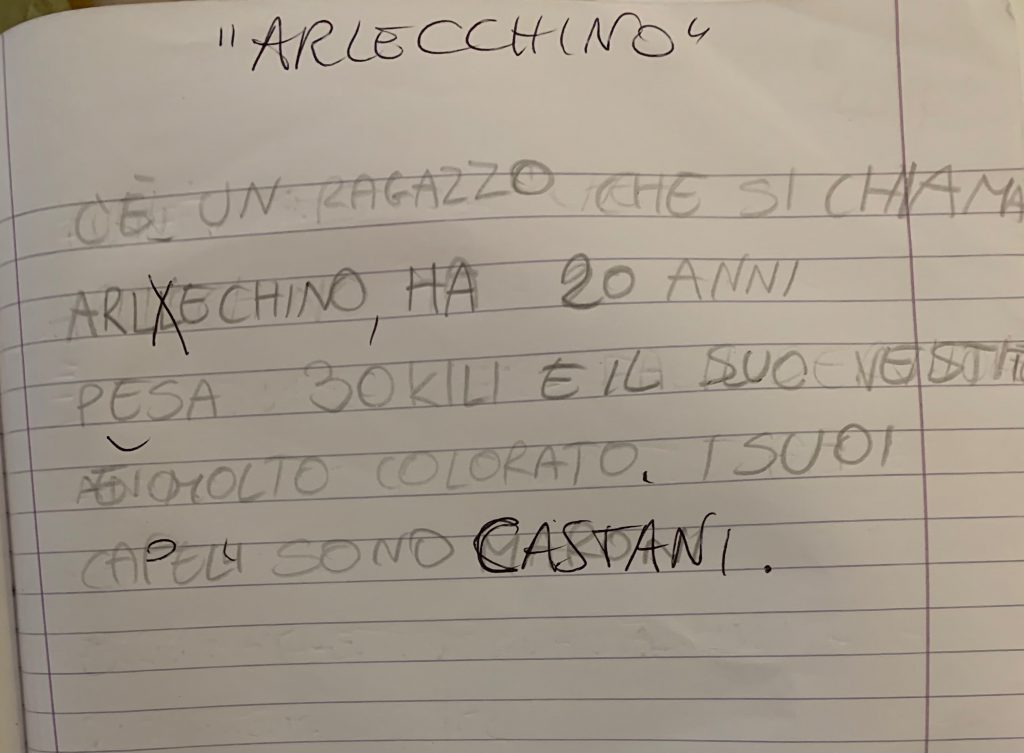 "ARLECCHINO"
C'È UN RAGAZZO CHE SI CHIAMA
ARLECHINO, HA 20 ANNI
PESA 30 KILI E IL SUO VESTITO
MOLTO COLORATO. I SUOI
CAPELI SONO CASTANI.